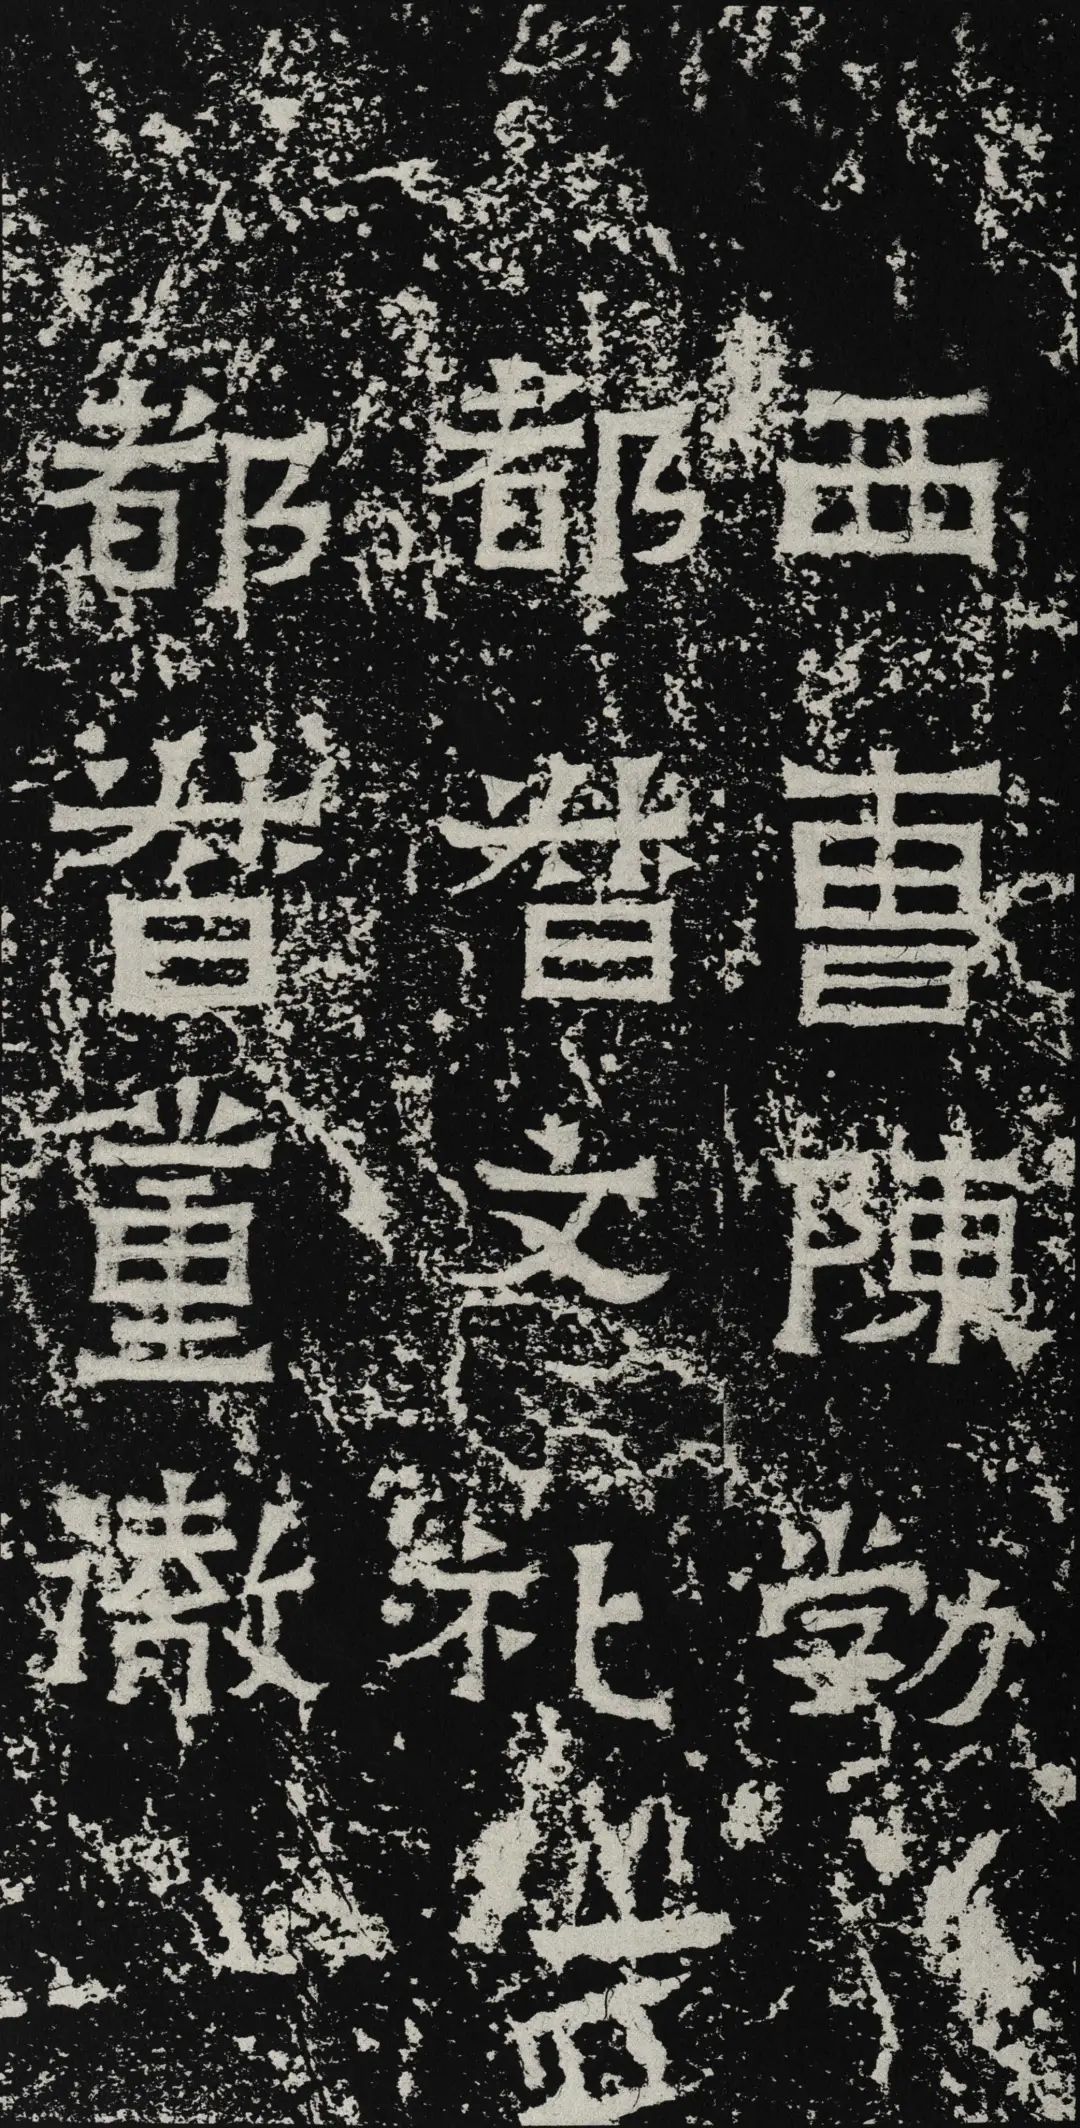 西曹陳勃
都督文礼
都督董徹